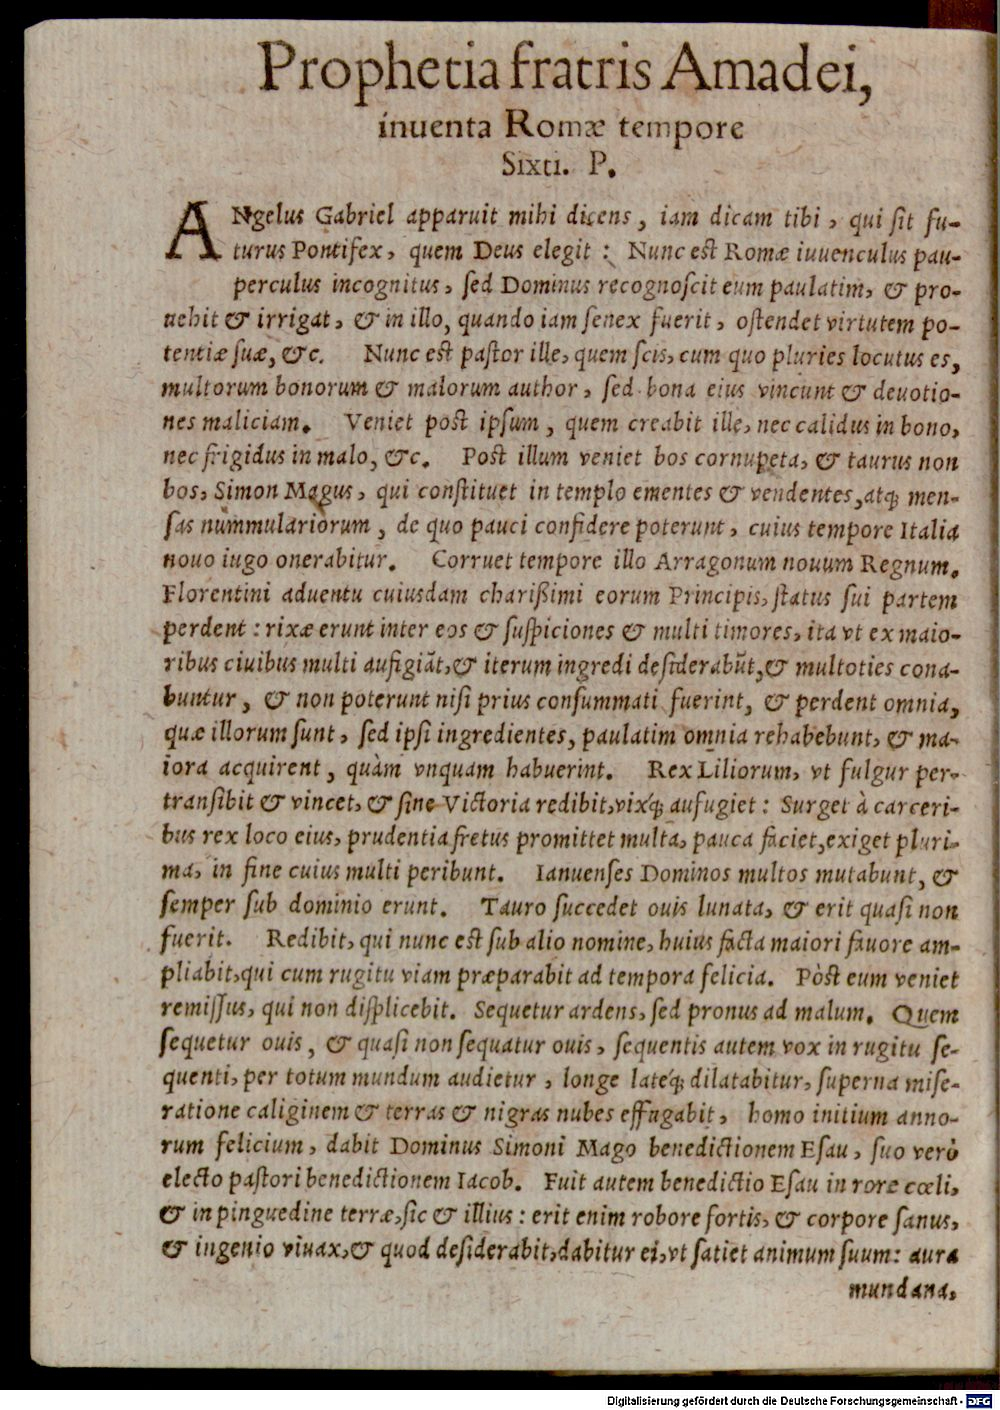 Prophetia fratris Amadei,
inuenta Romæ tempore
Sixti. P.
ANgelus Gabriel apparuit mihi dicens, iam dicam tibi, qui sit fu-
turus Pontifex, quem Deus elegit: Nunc est Romæ iuuenculus pau-
perculus incognitus, sed Dominus recognoscit eum paulatim, & pro-
uehit & irrigat, & in illo, quando iam senex fuerit, ostendet virtutem po-
tentiæ suæ, &c. Nunc est pastor ille, quem scis, cum quo pluries locutus es,
multorum bonorum & malorum author, sed bona eius vincunt & deuotio-
nes maliciam. Veniet post ipsum, quem creabit ille, nec calidus in bono,
nec frigidus in malo, &c. Post illum veniet bos cornupeta, & taurus non
bos, Simon Magus, qui constituet in templo ementes & vendentes, atq; men-
sas nummulariorum, de quo pauci confidere poterunt, cuius tempore Italia
nouo iugo onerabitur. Corruet tempore illo Arragonum nouum Regnum.
Florentini aduentu cuiusdam charißimi eorum Principis, status sui partem
perdent: rixæ erunt inter eos & suspiciones & multi timores, ita vt ex maio-
ribus ciuibus multi aufigiãt, & iterum ingredi desiderabũt, & multoties cona-
buntur, & non poterunt nisi prius consummati fuerint, & perdent omnia,
quæ illorum sunt, sed ipsi ingredientes, paulatim omnia rehabebunt, & ma-
iora acquirent, quàm vnquam habuerint. Rex Liliorum, vt fulgur per-
transibit & vincet, & sine Victoria redibit, vixq́; aufugiet: Surget à carceri-
bus rex loco eius, prudentia fretus promittet multa, pauca faciet, exiget pluri-
ma, in fine cuius multi peribunt. Ianuenses Dominos multos mutabunt, &
semper sub dominio erunt. Tauro succedet ouis lunata, & erit quasi non
fuerit. Redibit, qui nunc est sub alio nomine, huius facta maiori fauore am-
pliabit, qui cum rugitu viam præparabit ad tempora felicia. Pòst eum veniet
remissus, qui non displicebit. Sequetur ardens, sed pronus ad malum. Quem
sequetur ouis, & quasi non sequatur ouis, sequentis autem vox in rugitu se-
quenti, per totum mundum audietur, longe lateq́; dilatabitur, superna mise-
ratione caliginem & terras & nigras nubes effugabit, homo initium anno-
rum felicium, dabit Dominus Simoni Mago benedictionem Esau, suo verò
electo pastori benedictionem Iacob. Fuit autem benedictio Esau in rore cœli,
& in pinguedine terræ, sic & illius: erit enim robore fortis, & corpore sanus,
& ingenio viuax, & quod desiderabit, dabitur ei, vt satiet animum suum: aura
mundana,
Digitalisierung gefördert durch die Deutsche Forschungsgemeinschaft - DFG